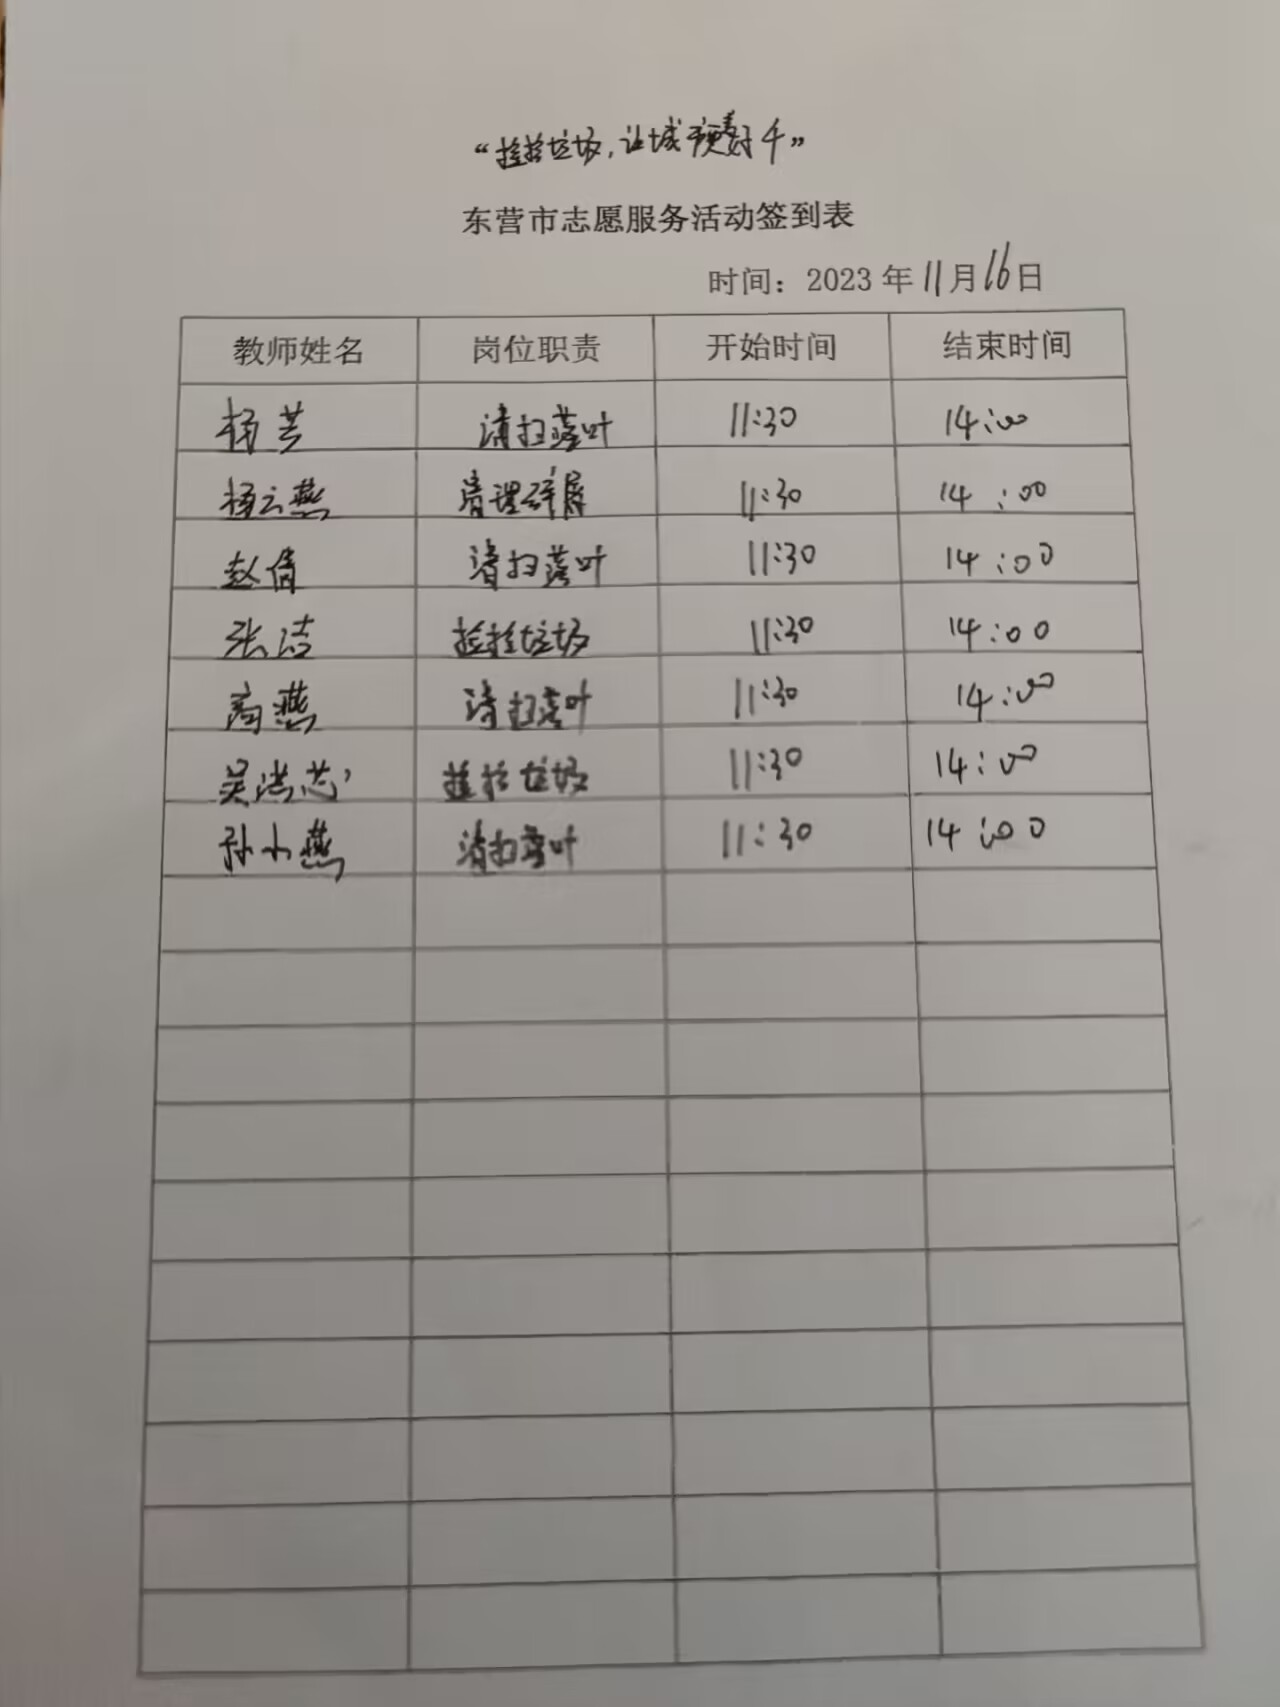 “捡拾垃圾，让城市更美好”
东营市志愿服务活动签到表
时间：2023年11月16日
教师姓名 岗位职责 开始时间 结束时间
杨芸 清扫落叶 11:30 14:00
杨云燕 清理碎屑 11:30 14:00
赵倩 清扫落叶 11:30 14:00
张洁 捡拾垃圾 11:30 14:00
高燕 清扫落叶 11:30 14:00
吴洪芯 捡拾垃圾 11:30 14:00
孙小燕 清扫落叶 11:30 14:00